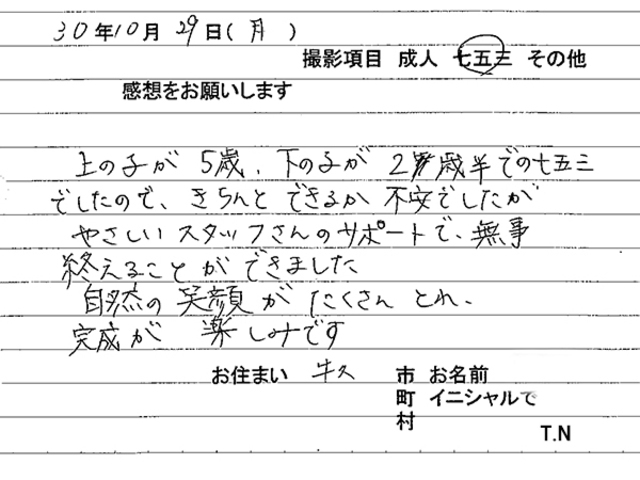 30年10月29日(月)
撮影項目 成人 七五三 その他
感想をお願いします
上の子が 5歳、下の子が 2歳半での七五三
でしたので、きちんとできるか 不安でしたが
やさしいスタッフさんのサポートで、無事
終えることができました
自然の笑顔が たくさん とれ、
完成が 楽しみです
お住まい 市 お名前
町 イニシャルで
村
T.N